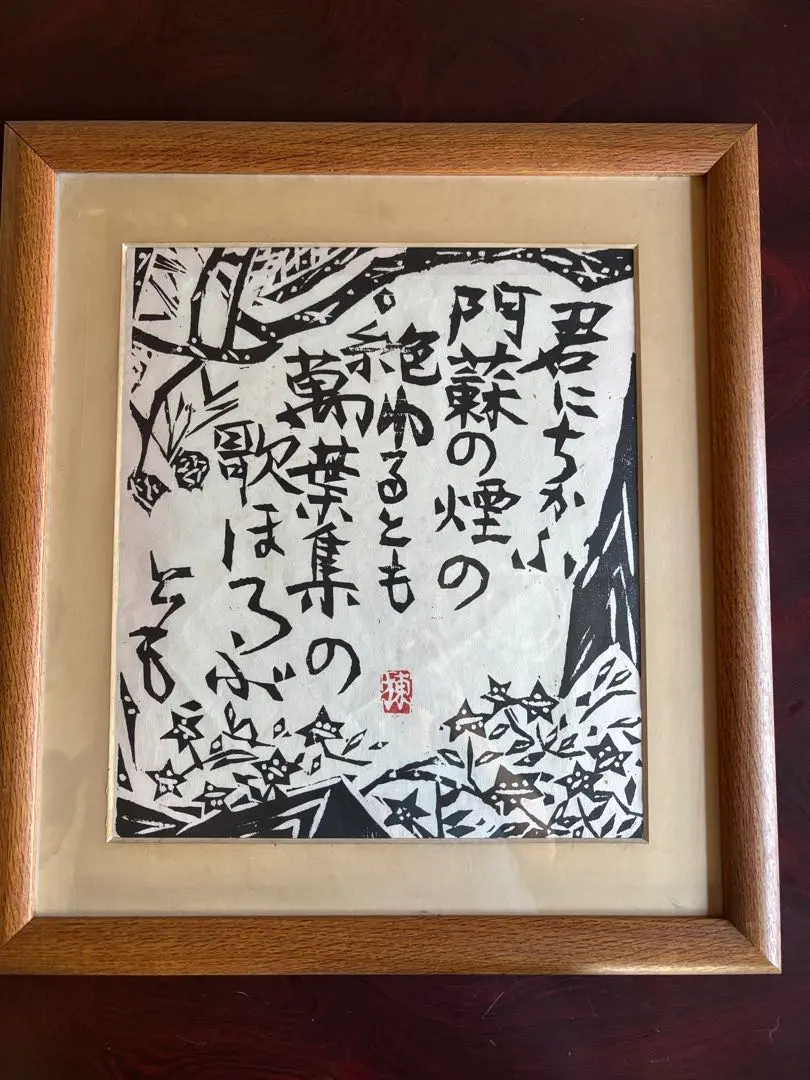 君にちかふ
阿蘇の煙の
絶ゆるとも
萬葉集の
歌ほろぶ
とも
棟